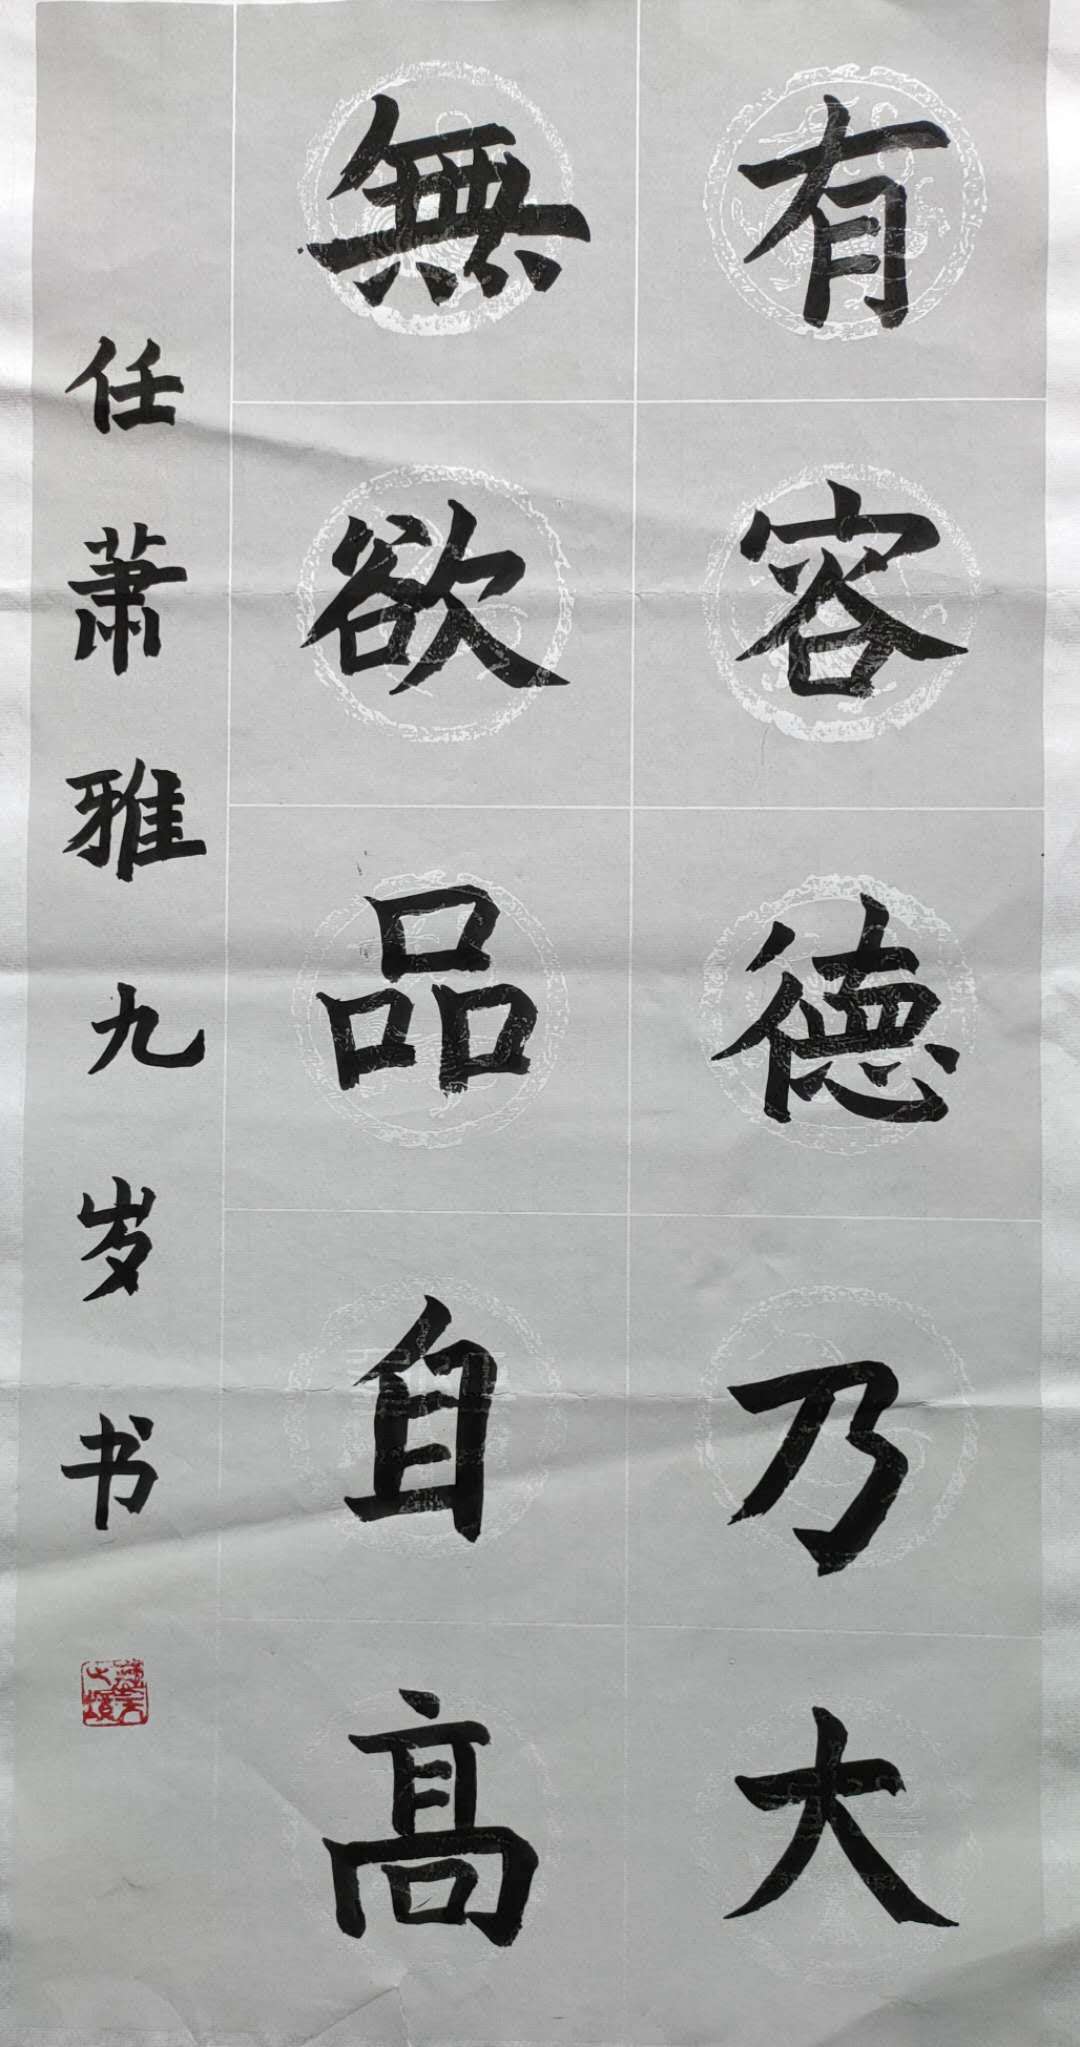 有容德乃大
無欲品自高
任蕭雅九岁书